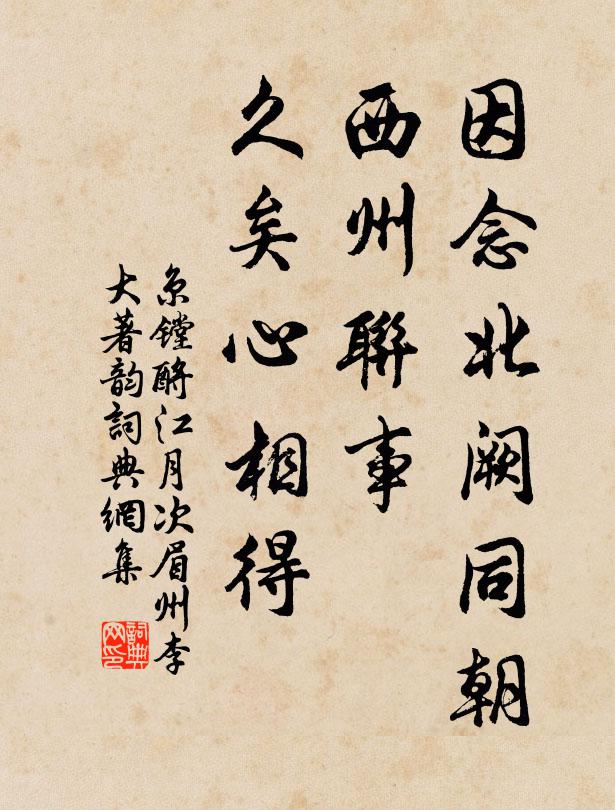 因念北阙同朝
西州聯事
久矣心相得
京镗酹江月次眉州李
大著韵詞典網集
詞典
网印